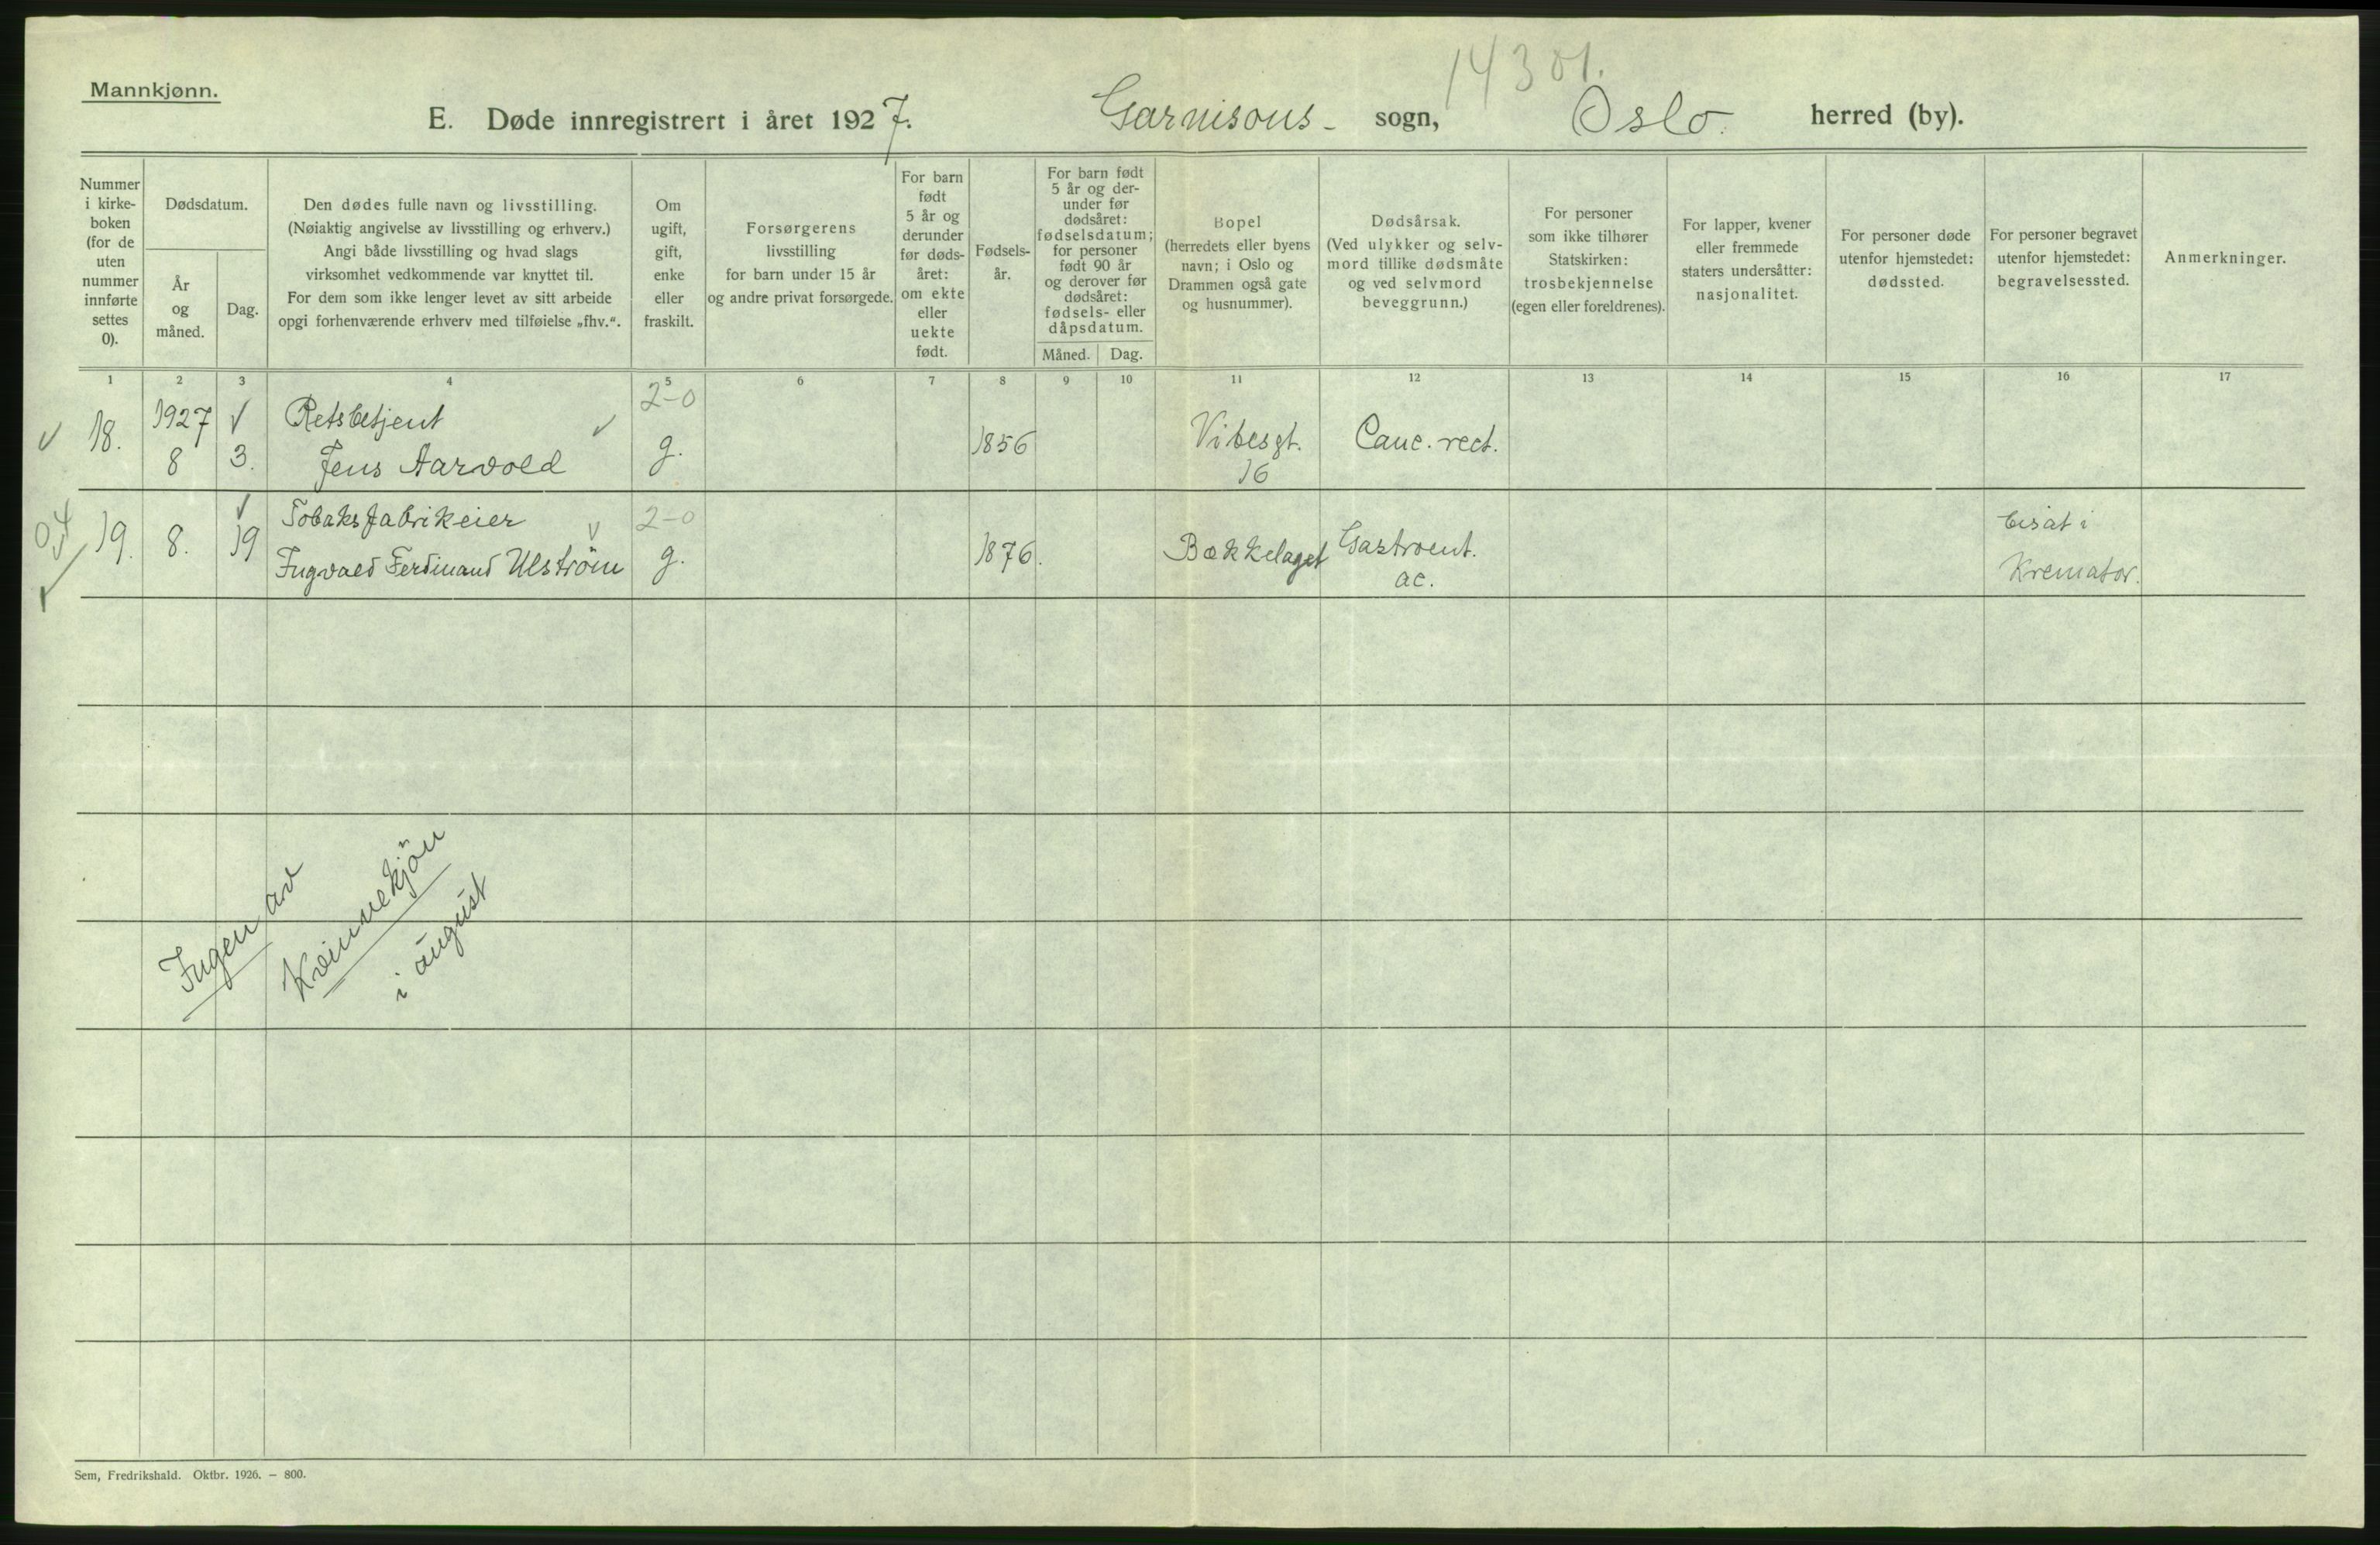 14301.
Mannkjønn.
E. Døde innregistrert i året 1927. Garnisons- sogn, Oslo. herred (by).
Nummer
i kirke-
boken
(for de
uten
nummer
innførte
settes
0).
Dødsdatum.
År
og
måned.
Dag.
Den dødes fulle navn og livsstilling.
(Nøiaktig angivelse av livsstilling og erhverv.)
Angi både livsstilling og hvad slags
virksomhet vedkommende var knyttet til.
For dem som ikke lenger levet av sitt arbeide
opgi forhenværende erhverv med tilføielse „fhv.“.
Om
ugift,
gift,
enke
eller
fraskilt.
Forsørgerens
livsstilling
for barn under 15 år
og andre privat forsørgede.
For barn
født
5 år og
derunder
før døds-
året:
om ekte
eller
uekte
født.
Fødsels-
år.
For barn født
5 år og der-
under før
dødsåret:
fødselsdatum;
for personer
født 90 år
og derover før
dødsåret:
fødsels- eller
dåpsdatum.
Måned. Dag.
Bopel
(herredets eller byens
navn; i Oslo og
Drammen også gate
og husnummer).
Dødsårsak.
(Ved ulykker og selv-
mord tillike dødsmåte
og ved selvmord
beveggrunn.)
For personer
som ikke tilhører
Statskirken:
trosbekjennelse
(egen eller foreldrenes).
For lapper, kvener
eller fremmede
staters undersåtter:
nasjonalitet.
For personer døde
utenfor hjemstedet:
dødssted.
For personer begravet
utenfor hjemstedet:
begravelsessted.
Anmerkninger.
1 2 3 4 5 6 7 8 9 10 11 12 13 14 15 16 17
18. 1927 8 3. Retsbetjent
Jens Aarvold
2-0
g.
1856
Vibesgt.
16
Canc. rect.
19. 8. 19 Tobaksfabrikeier
Ingvald Ferdinand Ulström
2-0
g.
1876.
Bækkelaget
Gastroent.
ac.
bisat i
Kremator.
Ingen av
Kvinnekjön
i august
Sem, Fredrikshald. Oktbr. 1926. — 800.